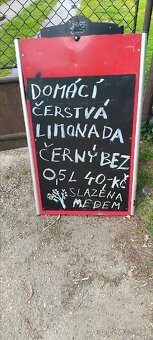 DOMÁCÍ
ČERSTVÁ
LIMONADA
ČERNÝ BEZ
0,5L 40-KČ
SLAZĚNA
MEDEM